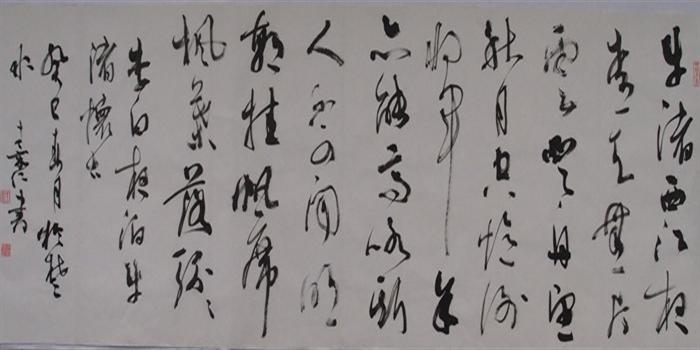 牛渚西江夜
青天無片
雲登舟望
秋月空憶謝
將軍余
亦能高詠斯
人不可聞明
朝挂帆席
楓葉落紛紛
李白夜泊牛
渚懷古
癸巳春月於楚
水
書